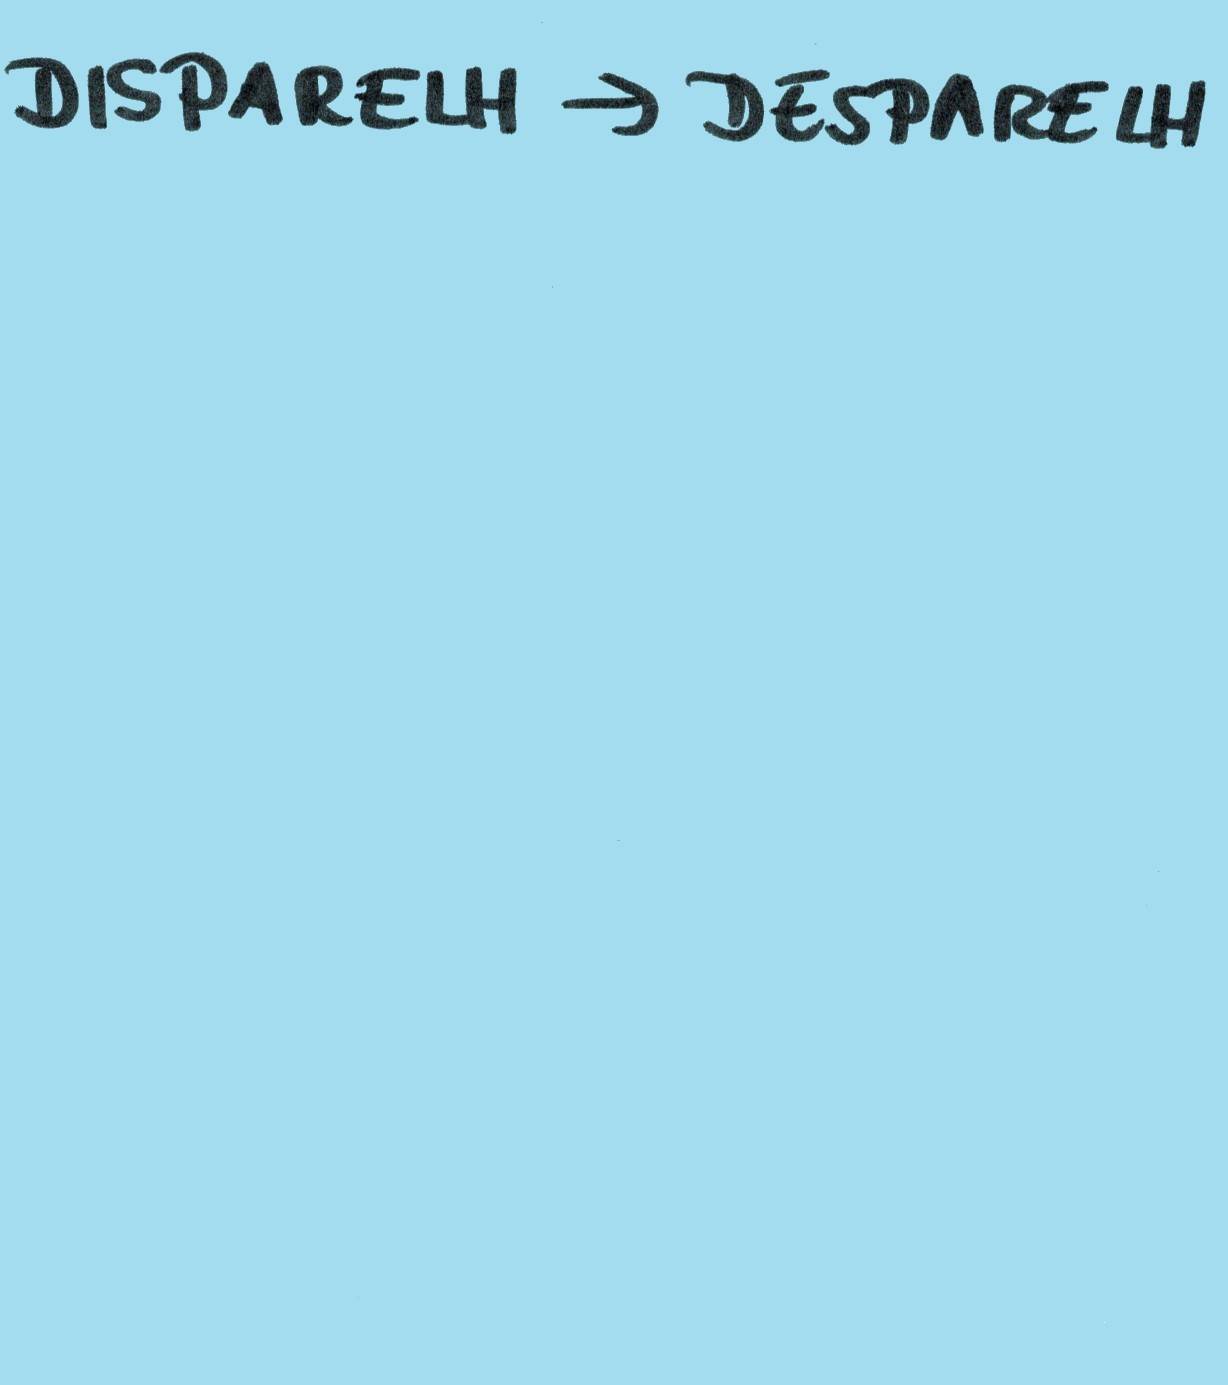 DISPARELH → DESPARELH